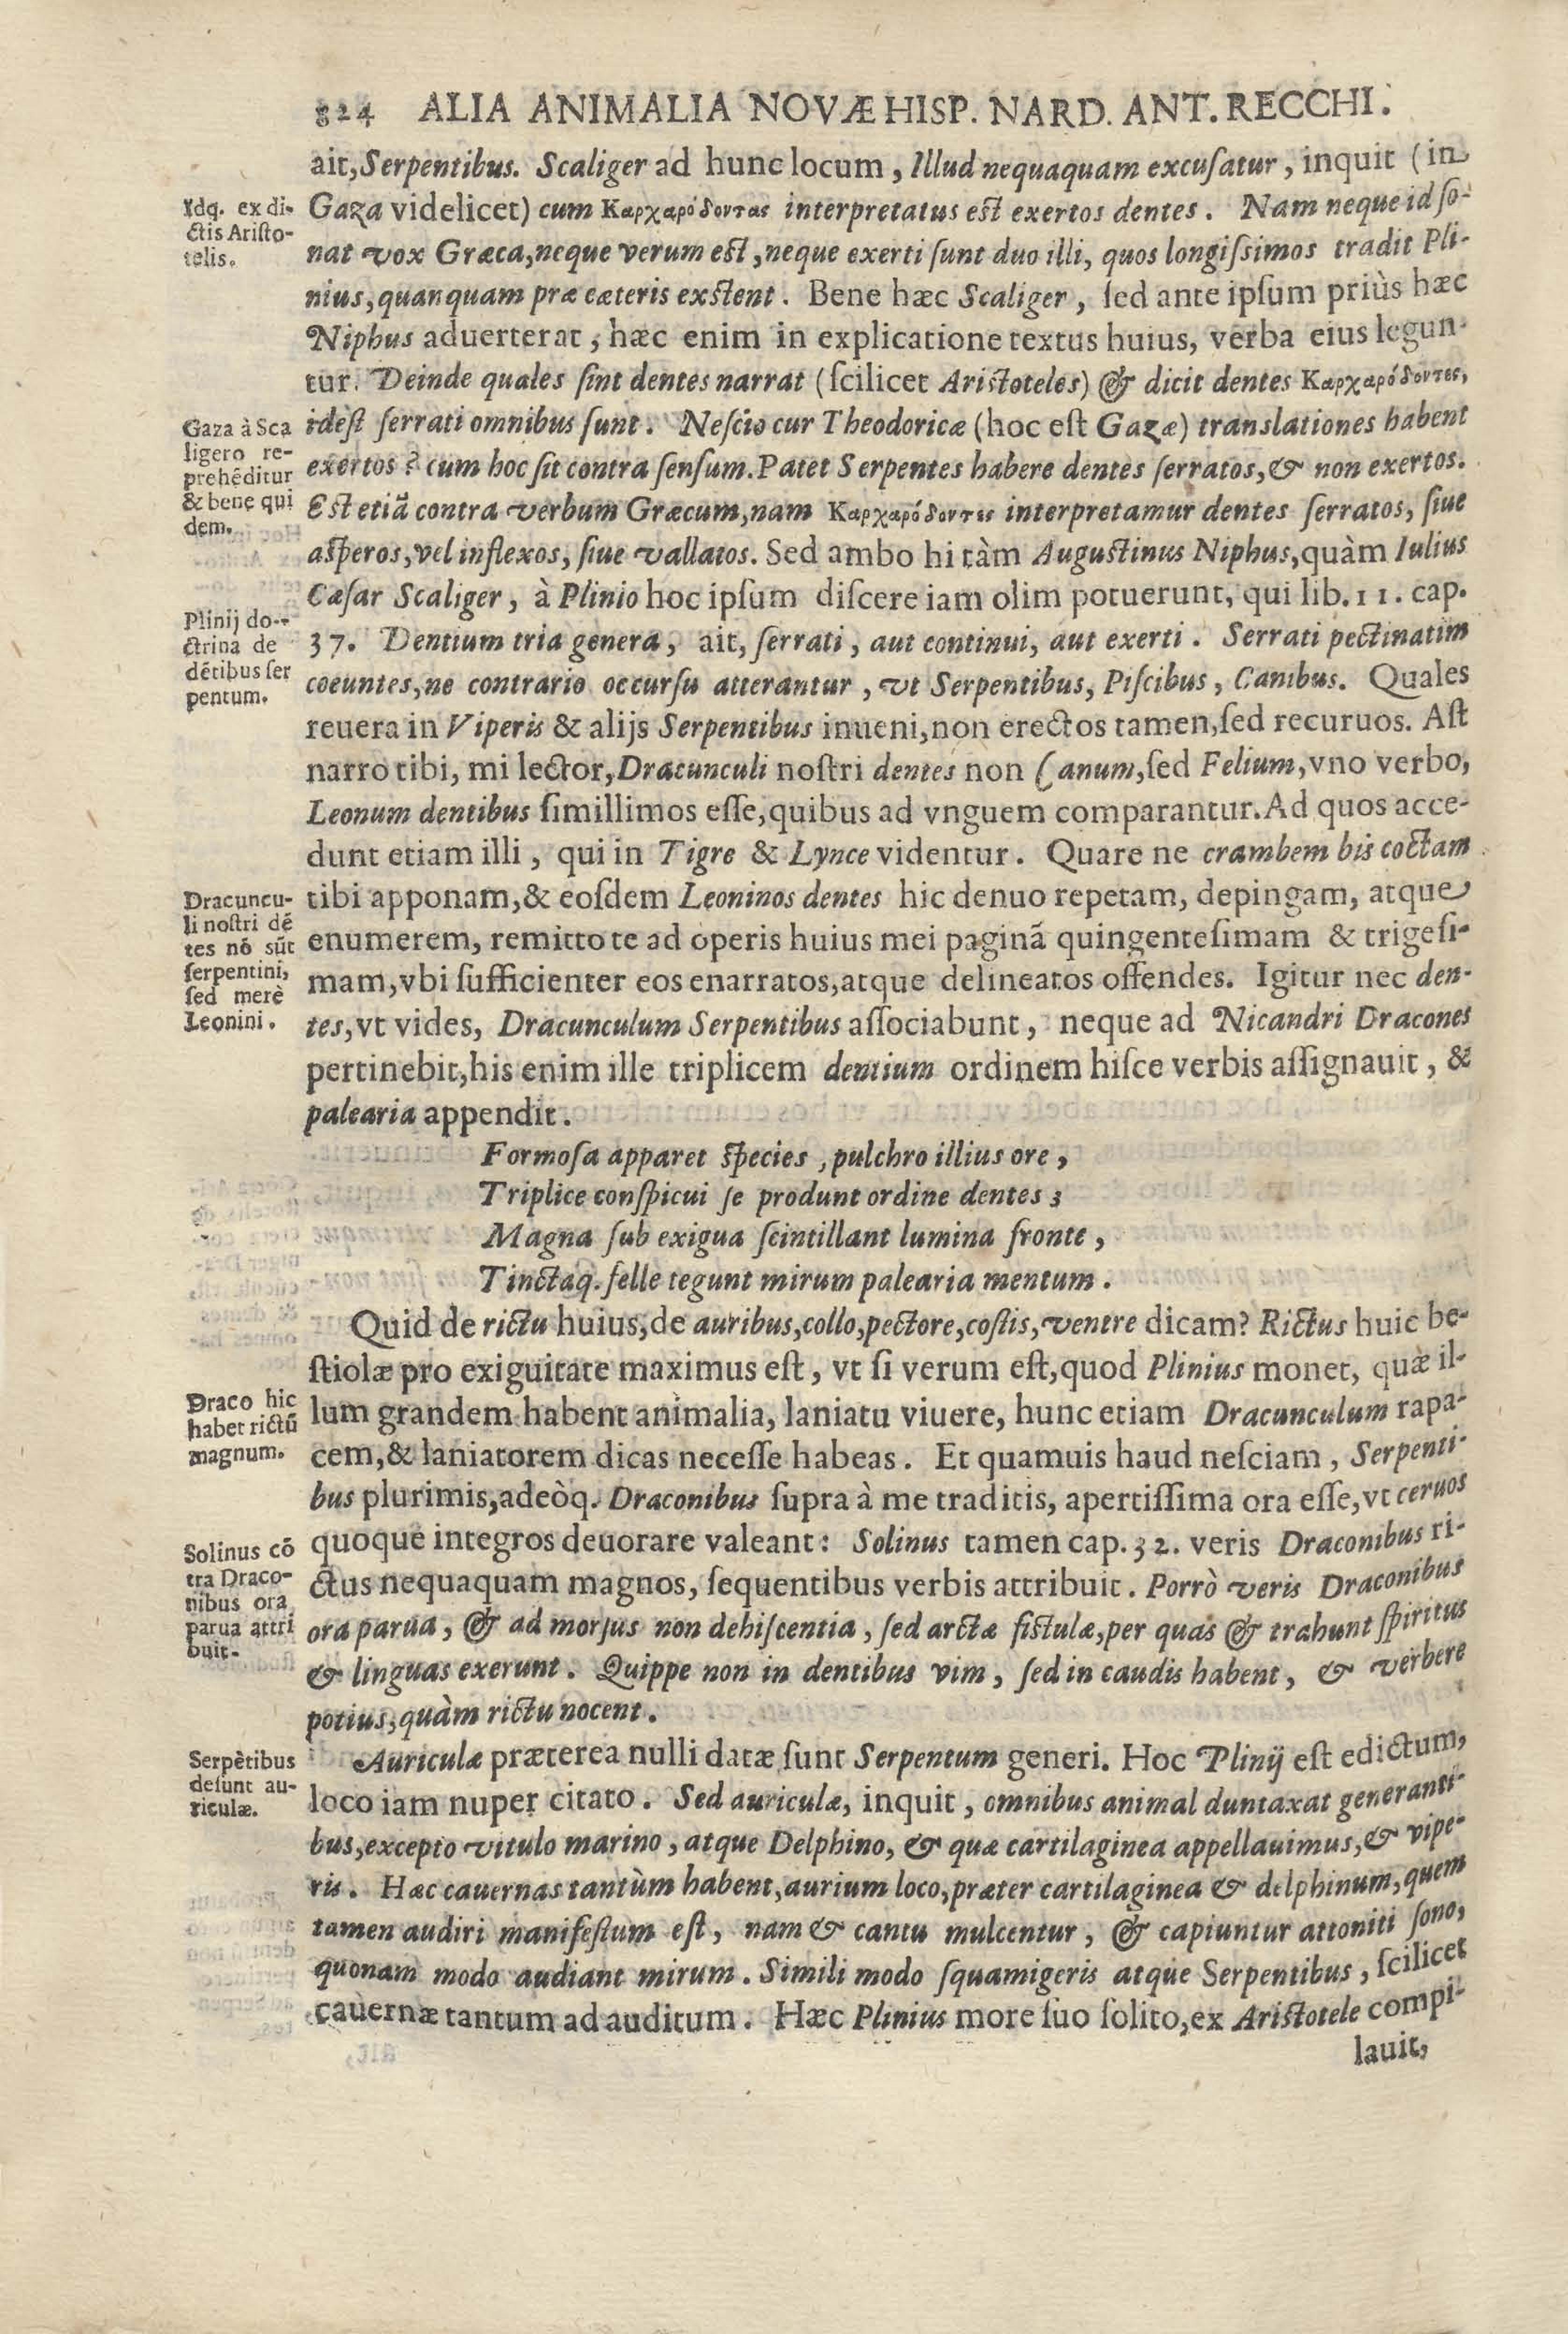 824 ALIA ANIMALIA NOVÆ HISP. NARD. ANT. RECCHI.
ait, Serpentibus. Scaliger ad hunc locum, Illud nequaquam excuſatur, inquit (in
Gaza videlicet) cum Καρχαρόδοντας interpretatus eſt exertos dentes. Nam neque id ſo-
nat vox Græca, neque verum eſt, neque exerti ſunt duo illi, quos longiſsimos tradit Pli-
nius, quanquam præ cæteris exſtent. Bene hæc Scaliger, ſed ante ipſum priùs hæc
Niphus aduerterat, hæc enim in explicatione textus huius, verba eius legun-
tur. Deinde quales ſint dentes narrat (ſcilicet Ariſtoteles) & dicit dentes Καρχαρόδοντες,
ideſt ſerrati omnibus ſunt. Neſcio cur Theodoricæ (hoc eſt Gazæ) translationes habent
exertos? cum hoc ſit contra ſenſum. Patet Serpentes habere dentes ſerratos, & non exertos.
Eſt etiã contra verbum Græcum, nam Καρχαρόδοντες interpretamur dentes ſerratos, ſiue
aſperos, vel inflexos, ſiue vallatos. Sed ambo hi tàm Auguſtinus Niphus, quàm Iulius
Cæſar Scaliger, à Plinio hoc ipſum diſcere iam olim potuerunt, qui lib. 11. cap.
37. Dentium tria genera, ait, ſerrati, aut continui, aut exerti. Serrati pectinatim
coeuntes, ne contrario occurſu atterantur, vt Serpentibus, Piſcibus, Canibus. Quales
reuera in Viperis & alijs Serpentibus inueni, non erectos tamen, ſed recuruos. Aſt
narro tibi, mi lector, Dracunculi noſtri dentes non Canum, ſed Felium, vno verbo,
Leonum dentibus ſimillimos eſſe, quibus ad vnguem comparantur. Ad quos acce-
dunt etiam illi, qui in Tigre & Lynce videntur. Quare ne crambem bis coctam
tibi apponam, & eoſdem Leoninos dentes hic denuo repetam, depingam, atque
enumerem, remitto te ad operis huius mei paginã quingenteſimam & trigeſi-
mam, vbi ſufficienter eos enarratos, atque delineatos offendes. Igitur nec den-
tes, vt vides, Dracunculum Serpentibus aſſociabunt, neque ad Nicandri Dracones
pertinebit, his enim ille triplicem dentium ordinem hiſce verbis aſſignauit, &
palearia appendit.
Formoſa apparet ſpecies, pulchro illius ore,
Triplice conſpicui ſe produnt ordine dentes;
Magna ſub exigua ſcintillant lumina fronte,
Tinctaq. felle tegunt mirum palearia mentum.
Quid de rictu huius, de auribus, collo, pectore, coſtis, ventre dicam? Rictus huic be-
ſtiolæ pro exiguitate maximus eſt, vt ſi verum eſt, quod Plinius monet, quæ il-
lum grandem habent animalia, laniatu viuere, hunc etiam Dracunculum rapa-
cem, & laniatorem dicas neceſſe habeas. Et quamuis haud neſciam, Serpenti-
bus plurimis, adeòq. Draconibus ſupra à me traditis, apertiſſima ora eſſe, vt ceruos
quoque integros deuorare valeant: Solinus tamen cap. 32. veris Draconibus ri-
ctus nequaquam magnos, ſequentibus verbis attribuit. Porrò veris Draconibus
ora parua, & ad morſus non dehiſcentia, ſed arctæ fiſtulæ, per quas & trahunt ſpiritus
& linguas exerunt. Quippe non in dentibus vim, ſed in caudis habent, & verbere
potius, quàm rictu nocent.
Auriculæ præterea nulli datæ ſunt Serpentum generi. Hoc Plinij eſt edictum,
loco iam nuper citato. Sed auriculæ, inquit, omnibus animal duntaxat generanti-
bus, excepto vitulo marino, atque Delphino, & quæ cartilaginea appellauimus, & vipe-
ris. Hæc cauernas tantùm habent, aurium loco, præter cartilaginea & delphinum, quem
tamen audiri manifeſtum eſt, nam & cantu mulcentur, & capiuntur attoniti ſono,
quonam modo audiant mirum. Simili modo ſquamigeris atque Serpentibus, ſcilicet
cauernæ tantum ad auditum. Hæc Plinius more ſuo ſolito, ex Ariſtotele compi-
lauit,
Idq. ex di-
ctis Ariſto-
telis.
Gaza à Sca
ligero re-
prehẽditur
& bene qui
dem.
Plinij do-
ctrina de
dẽtibus ſer
pentum.
Dracuncu-
li noſtri dẽ
tes nõ sũt
ſerpentini,
ſed merè
Leonini.
Draco hic
habet rictũ
magnum.
Solinus cõ
tra Draco-
nibus ora
parua attri
buit.
Serpẽtibus
deſunt au-
riculæ.